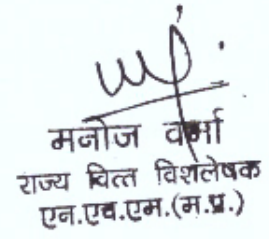 मनोज वर्मा
राज्य वित्त विश्लेषक
एन.एच.एम.(म.प्र.)